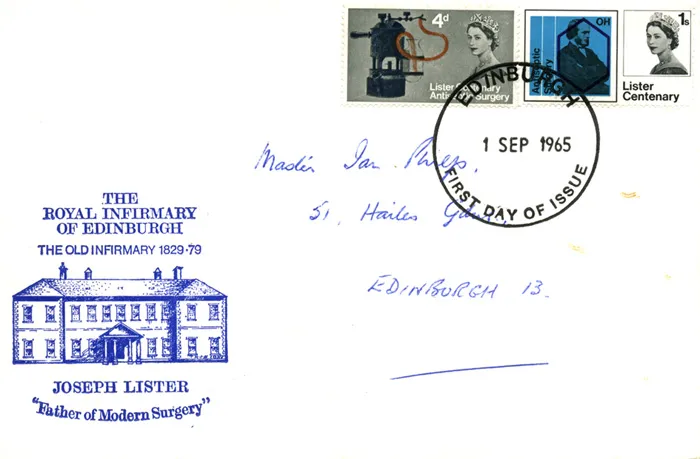 4d
Lister Centenary
Antiseptic Surgery
OH
1s
Antiseptic
Surgery
Lister
Centenary
EDINBURGH
1 SEP 1965
FIRST DAY OF ISSUE
Master Ian
51, Hailes
EDINBURGH 13.
THE
ROYAL INFIRMARY
OF EDINBURGH
THE OLD INFIRMARY 1829-79
JOSEPH LISTER
"Father of Modern Surgery"